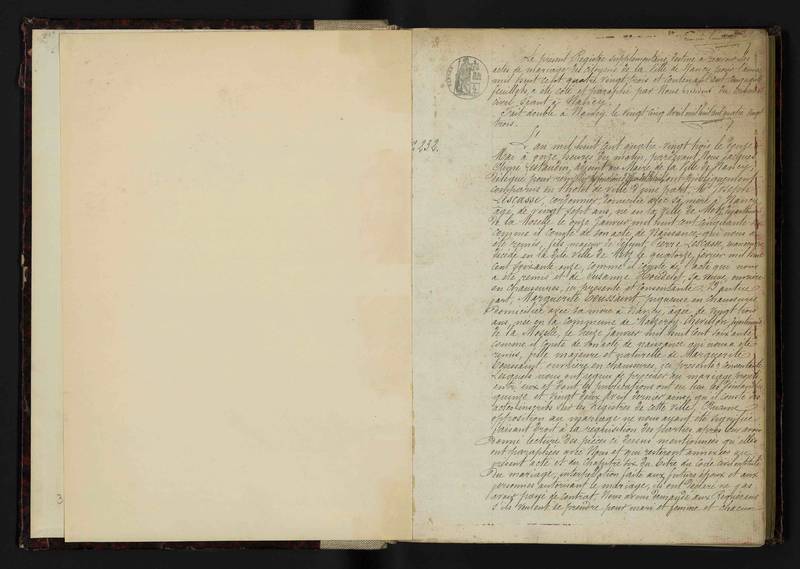 Le présent Registre supplémentaire destiné à recevoir les
actes de mariage des citoyens de la Ville de Nancy pour l'année
mil huit cent quatre vingt trois et contenant cent cinquante
feuillets, a été coté et paraphé par Nous Président du Tribunal
civil séant à Nancy.
Fait double à Nancy, le vingt cinq avril mil huit cent quatre vingt
trois.
232.
L'an mil huit cent quatre vingt trois le
Mai à onze heures du matin, pardevant Nous Jacques
adjoint au Maire de la Ville de Nancy
délégué pour remplir
comparus en l'hôtel de ville d'une part, Mr Joseph
Lescasse, cordonnier, domicilié avec sa mère à Nancy,
âgé de vingt sept ans, né en la ville de Metz, département
de la Moselle le onze janvier mil huit cent cinquante
comme il conste de son acte de naissance, qui nous a
été remis, fils majeur de défunt Pierre Lescasse,
décédé en la dite ville de Metz le quatorze février mil huit
cent soixante onze, comme il conste de l'acte qui nous
a été remis et de Susanne sa veuve, ouvrière
en chaussures, ici présente et consentante. D'autre
part, Marguerite Toussaint, piqueuse en chaussures
domiciliée avec sa mère à Nancy, âgée de vingt trois
ans, née en la commune de département
de la Moselle, le treize janvier mil huit cent soixante
comme il conste de son acte de naissance qui nous a été
remis, fille majeure et naturelle de Marguerite
Toussaint, ouvrière en chaussures, ici présente et consentante
Lesquels nous ont requis de procéder au mariage projeté
entre eux et dont les publications ont eu lieu les Dimanches
quinze et vingt deux avril dernier ainsi qu'il conste des
actes inscrits sur les registres de cette ville, Aucune
opposition au mariage ne nous ayant été signifiée
faisant droit à la réquisition des parties après leur avoir
donné lecture des pièces ci dessus mentionnées qu'elles
ont paraphées avec Nous et qui resteront annexées au
présent acte et du chapitre six du titre du code civil intitulé
du mariage, interpellation faite aux futurs époux et aux
personnes autorisant le mariage, ils ont déclaré ne pas
avoir passé de contrat. Nous avons demandé aux
s'ils veulent se prendre pour mari et femme et chacun